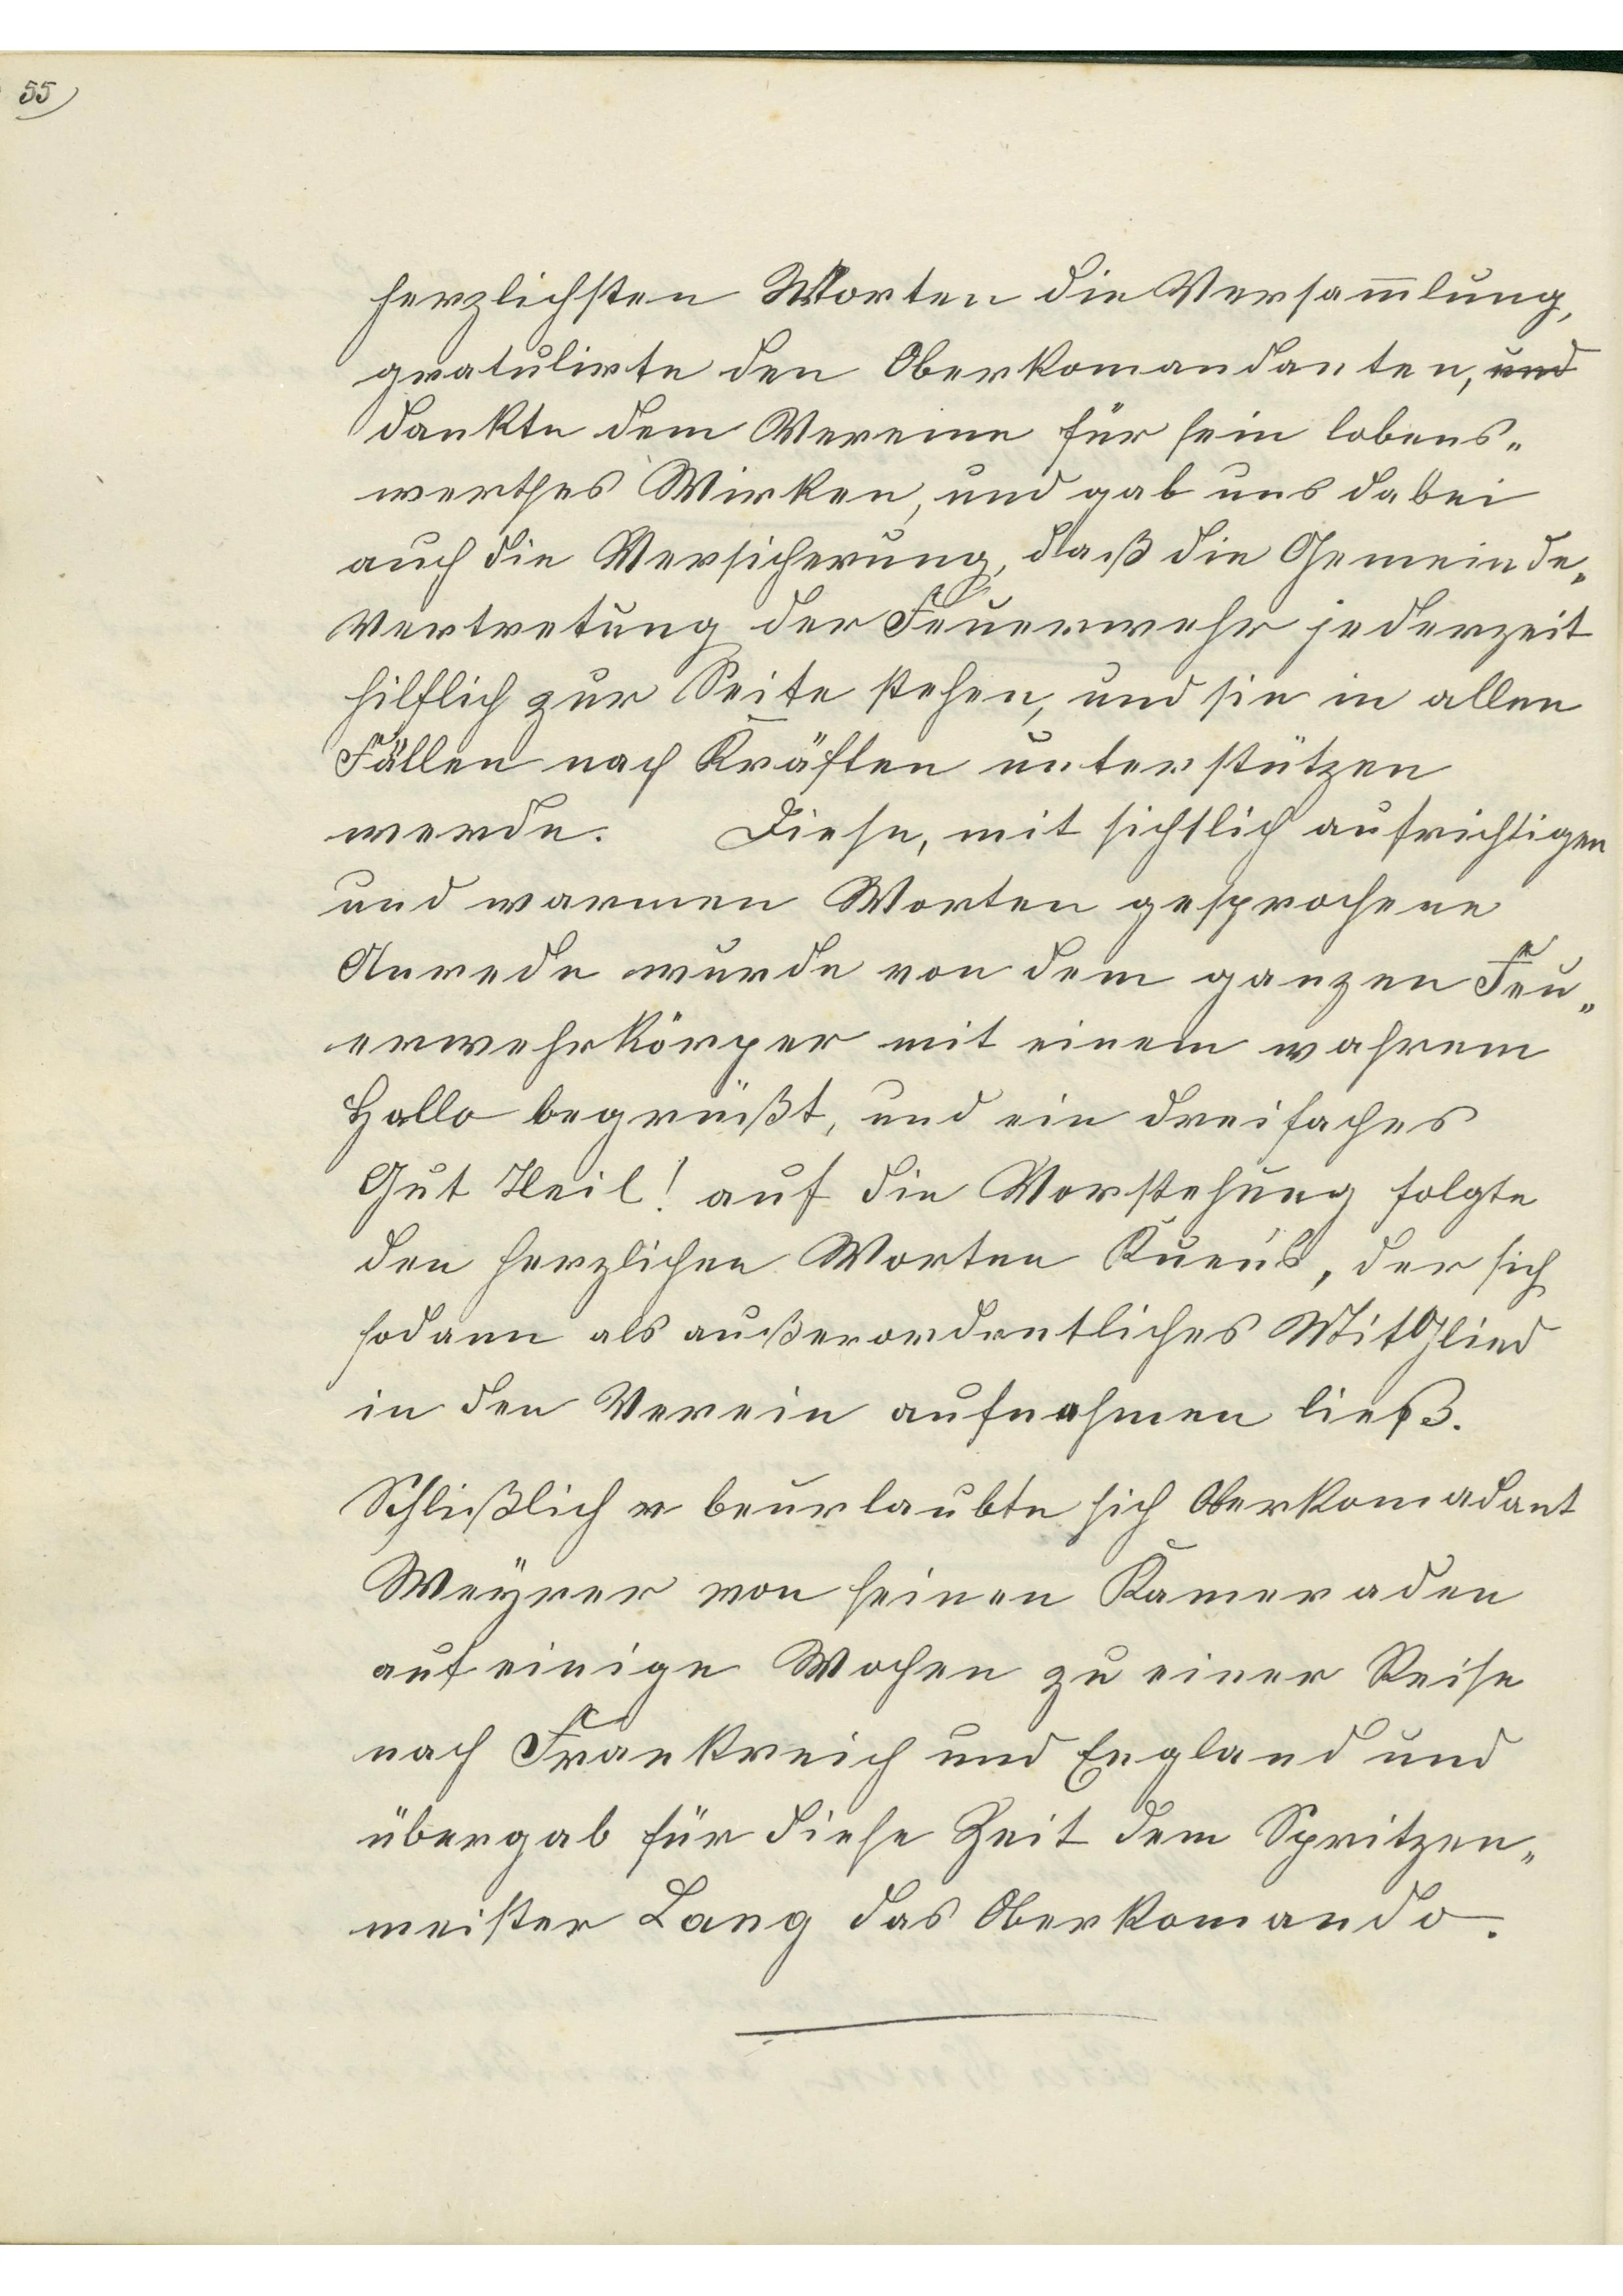 55
herzlichsten Worten die Versam̄lung,
gratulirte den Oberkomandanten, und
dankte dem Vereine für sein lobens„
werthes Wirken, und gab uns dabei
auch die Versicherung, daß die Gemeinde„
Vertretung der Feuerwehr jederzeit
hilflich zur Seite stehen, und sie in allen
Fällen nach Kräften unterstützen
werde. Diese, mit sichtlich aufrichtigen
und warmen Worten gesprochene
Anrede wurde von dem ganzen Feu„
erwehrkörper mit einem wahrem
Hallo begrüßt, und ein dreifaches
Gut Heil! auf die Vorstehung folgte
den herzlichen Worten, der sich
sodann als außerordentliches MitGlied
in den Verein aufnahmen ließ.
Schlißlich beurlaubte sich Oberkomadant
Weyrer von seinen Kameraden
auf einige Wochen zu einer Reise
nach Frankreich und England und
übergab für diese Zeit dem Spritzen„
meister Lang das Oberkomando.